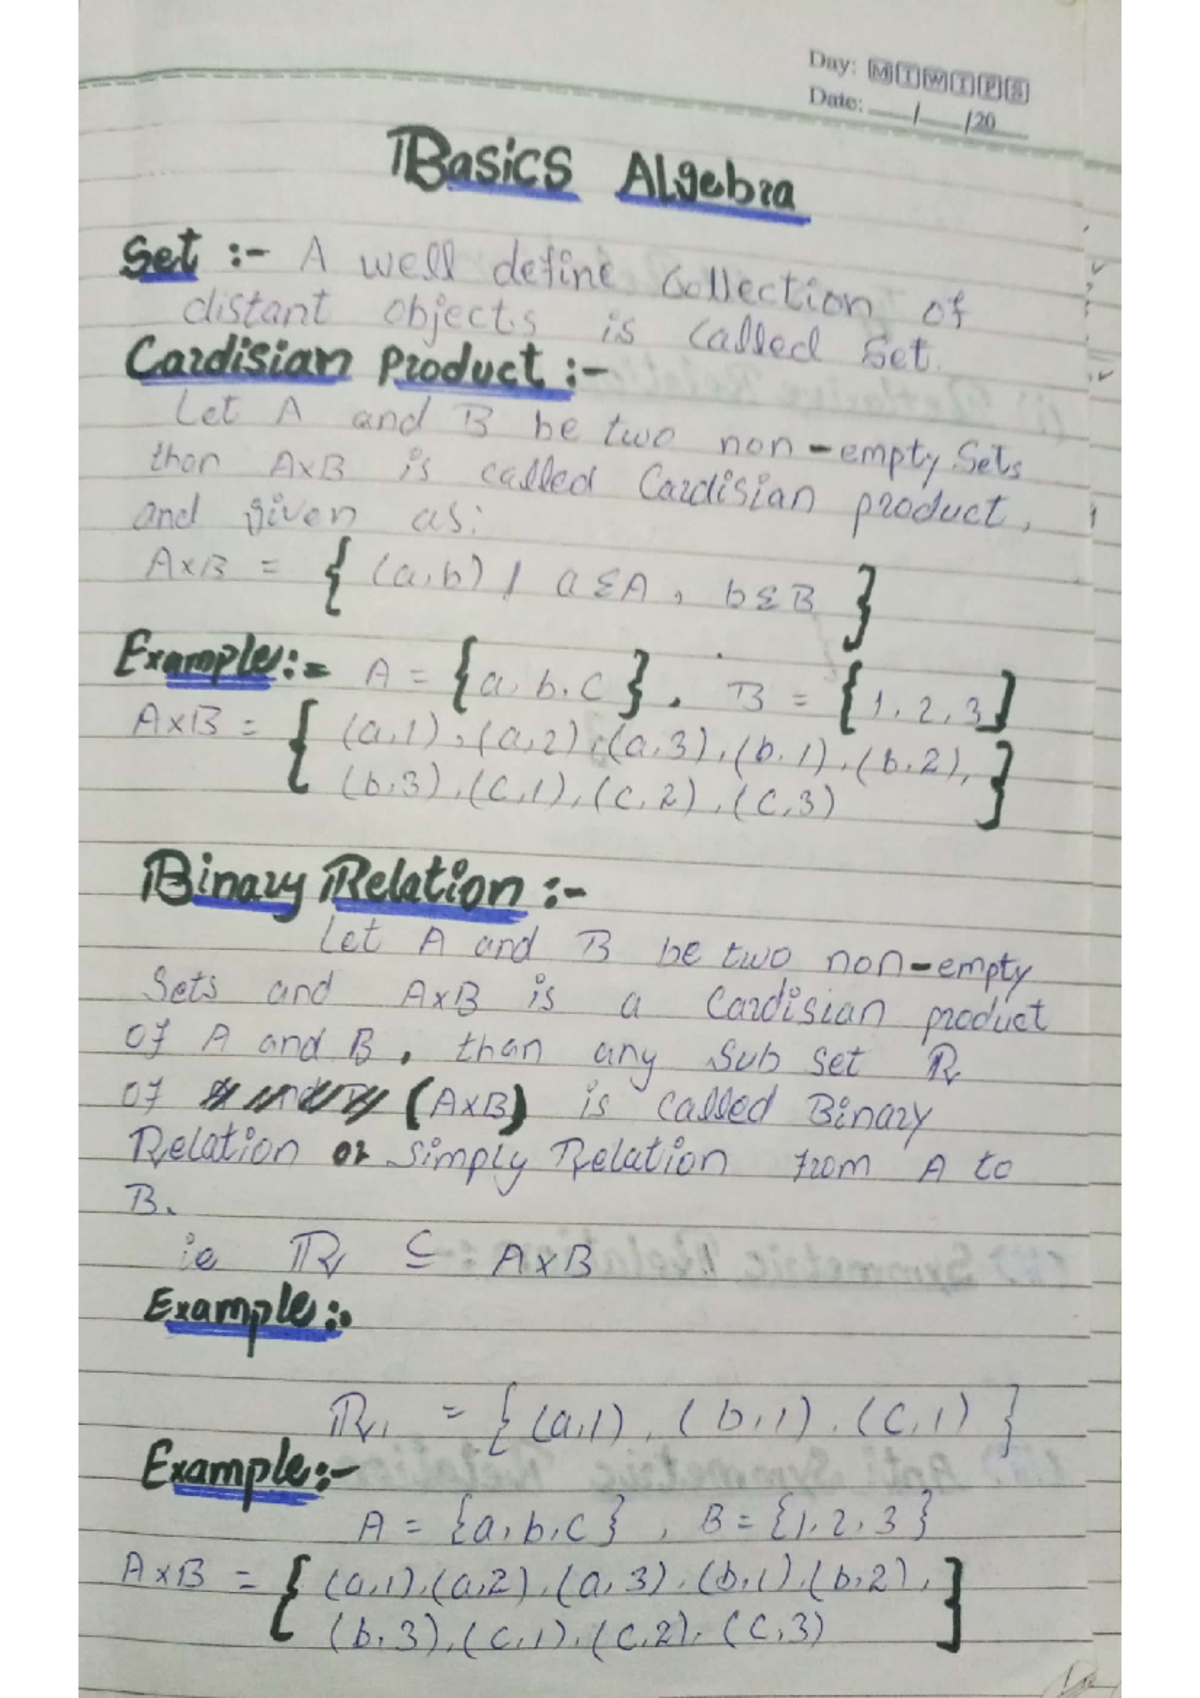 Day: M T W T F S
Date: ___/___/20___
Basics Algebra
Set :- A well define Collection of
distant objects is called Set.
Cardisian Product :-
Let A and B be two non-empty Sets
than A×B is called Cardisian product,
and given as:
A×B = { (a,b) / a∈A, b∈B }
Example:= A = {a, b, c}, B = {1, 2, 3}
A×B = { (a,1), (a,2), (a,3), (b,1), (b,2),
(b,3), (c,1), (c,2), (c,3) }
Binary Relation :-
Let A and B be two non-empty
Sets and A×B is a Cardisian product
of A and B, than any Sub set R
of (A×B) is called Binary
Relation or Simply Relation from A to
B.
ie R ⊆ A×B
Example:-
R₁ = {(a,1), (b,1), (c,1)}
Example:-
A = {a, b, c}, B = {1, 2, 3}
A×B = { (a,1), (a,2), (a,3), (b,1), (b,2),
(b,3), (c,1), (c,2), (c,3) }